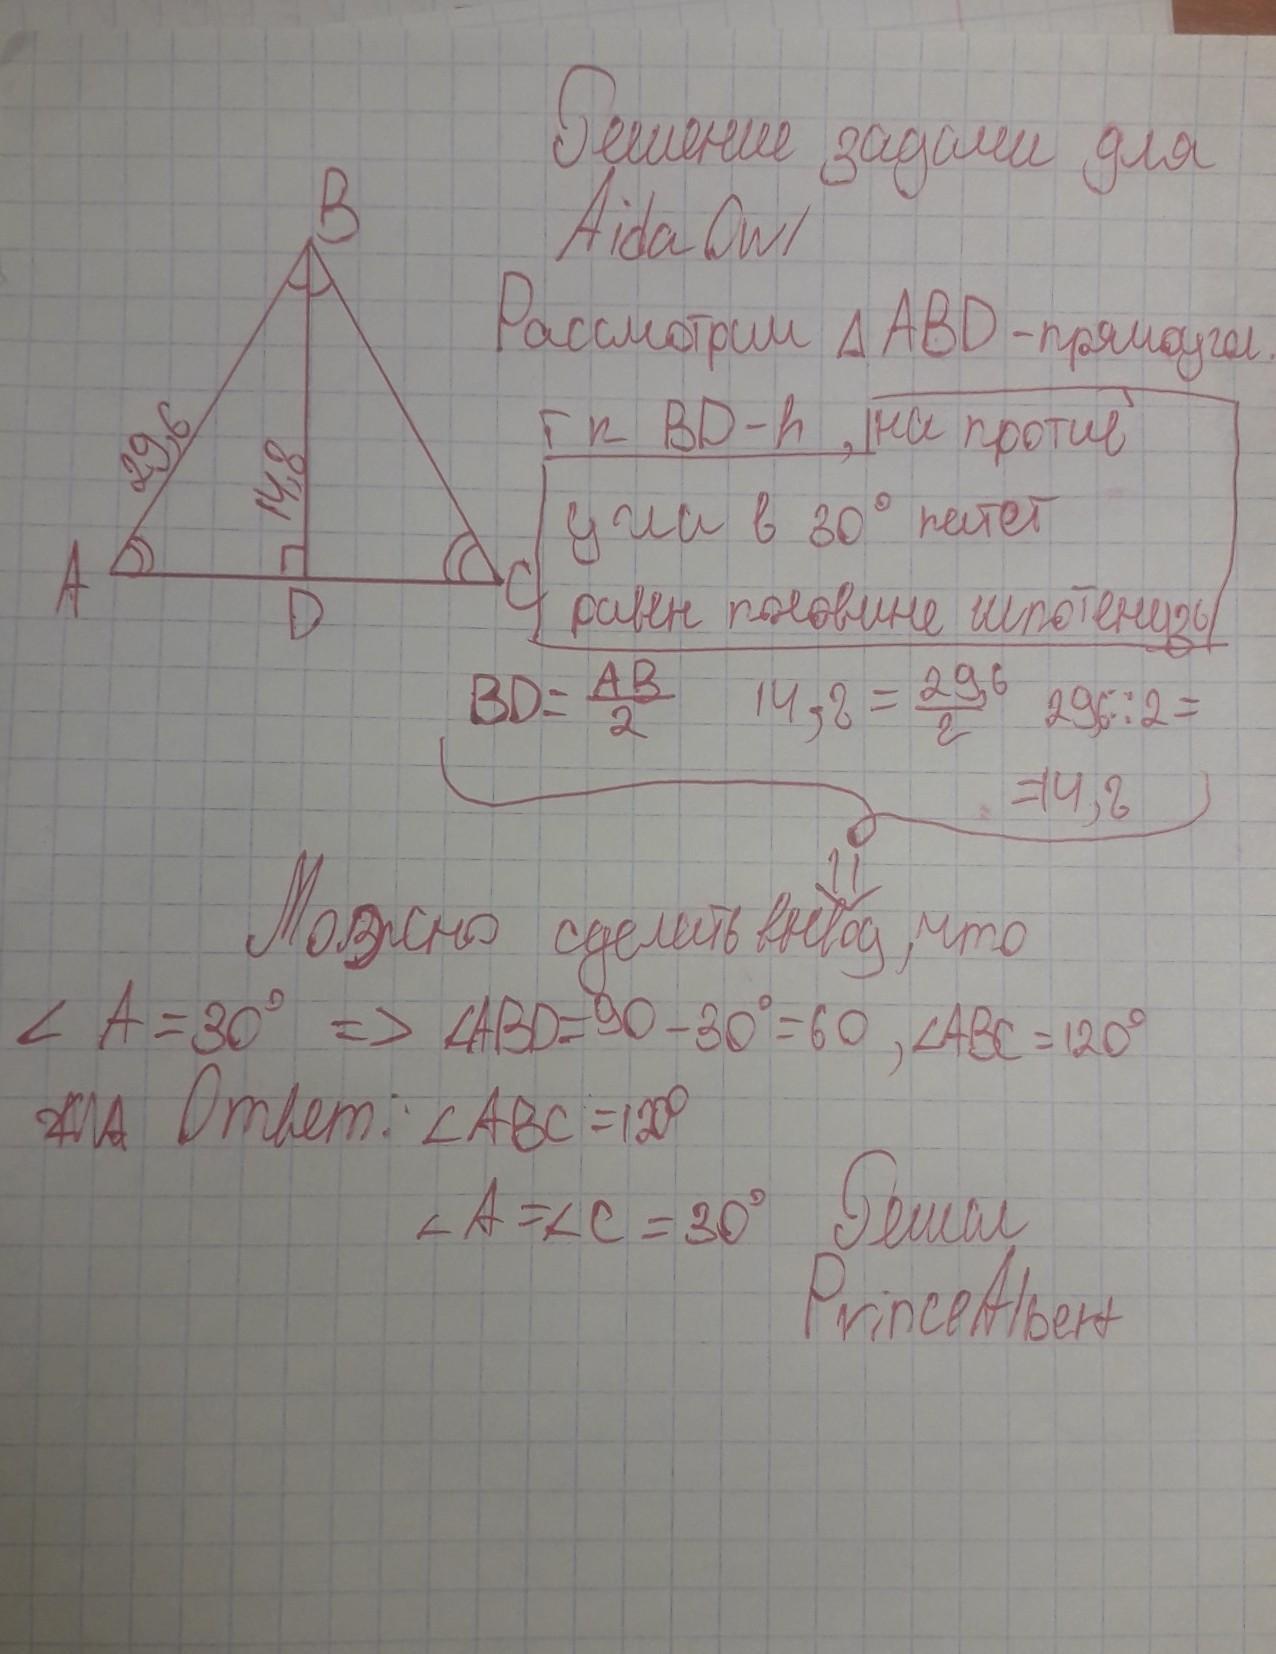 Решение задачи для
Aida Owl
B
Рассмотрим △ ABD - прямоугол.
т к BD - h, на против
29,6
14,8
угла в 30° катет
A
D
C
равен половине гипотенузы
BD = AB/2 14,8 = 29,6/2 29,6 : 2 =
= 14,8
Можно сделать вывод, что
∠ A = 30° => ∠ABD = 90 - 30° = 60, ∠ABC = 120°
Ответ: ∠ABC = 120°
∠A = ∠C = 30° Решал
PrinceAlbert